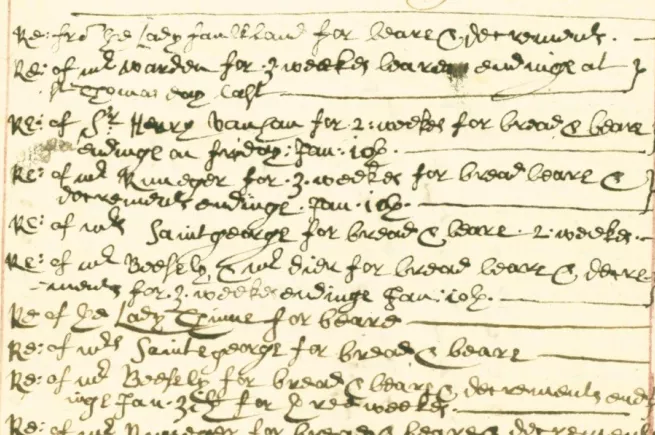 Re: fro ye Lady Faulkland for beare & decrements.
Re: of mr Warden for 3 weekes beare endinge at
St Thomas day last
Re: of Sr Henry Vaughan for 2: weekes for bread & beare
endinge on fryday: Jan: 10th.
Re: of mr Rumeger for 3. weekes for bread beare &
decrements endinge Jan: 10th.
Re: of mrs Saintgeorge for bread & beare 2: weekes.
Re: of mr Beesely, & mr dier for bread beare & decre-
ments for 3. weekes endinge Jan: 10th.
Re of ye Lady Thinne for beare
Re: of mrs Saintegeorge for bread & beare
Re: of mr Beesely for bread & beare & decrements end-
inge Jan. for weekes.
Re: of mr Rumeger for bread & beare & decrements